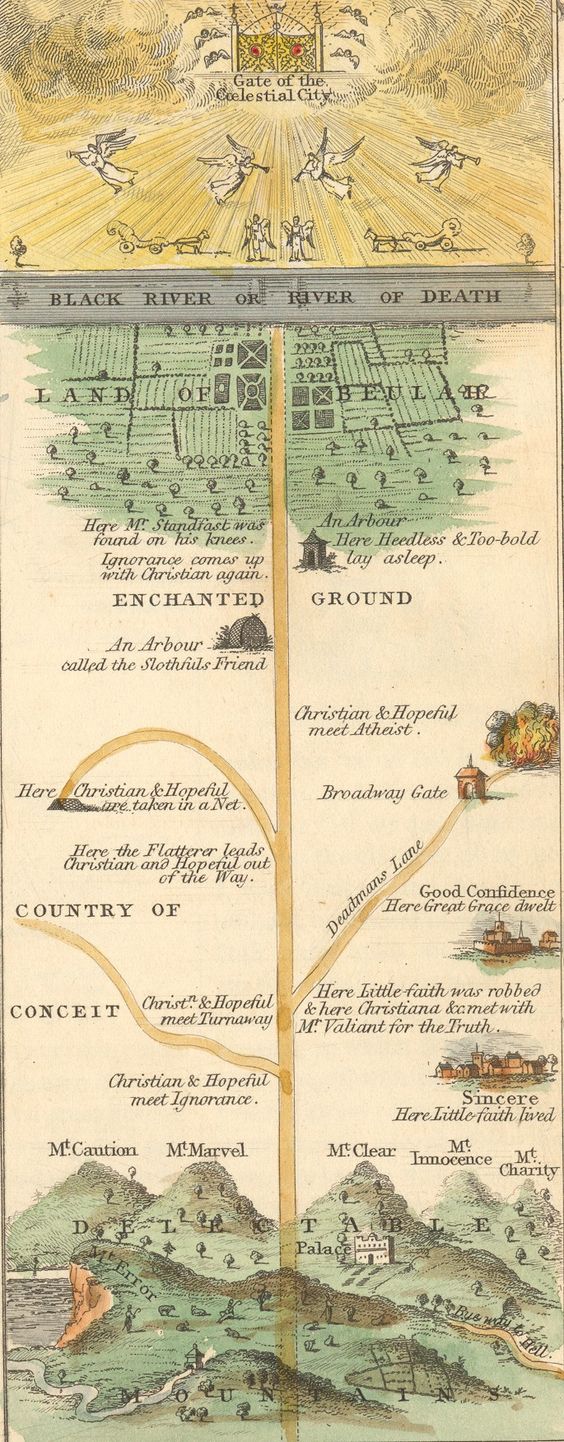 Gate of the
Cœlestial City
BLACK RIVER OR RIVER OF DEATH
LAND OF BEULAH
Here Mr. Standfast was
found on his knees.
Ignorance comes up
with Christian again.
An Arbour
Here Heedless & Too-bold
lay asleep.
ENCHANTED GROUND
An Arbour
called the Slothfuls Friend
Christian & Hopeful
meet Atheist.
Here Christian & Hopeful
are taken in a Net.
Broadway Gate
Here the Flatterer leads
Christian and Hopeful out
of the Way.
Deadmans Lane
Good Confidence
Here Great Grace dwelt
COUNTRY OF
CONCEIT
Christn. & Hopeful
meet Turnaway
Here Little-faith was robbed
& here Christiana &c. met with
Mr. Valiant for the Truth.
Christian & Hopeful
meet Ignorance.
Sincere
Here Little-faith lived
Mt. Caution
Mt. Marvel
Mt. Clear
Mt.
Innocence
Mt.
Charity
DELECTABLE
Palace
Mt. Error
Bye way to Hell.
MOUNTAINS